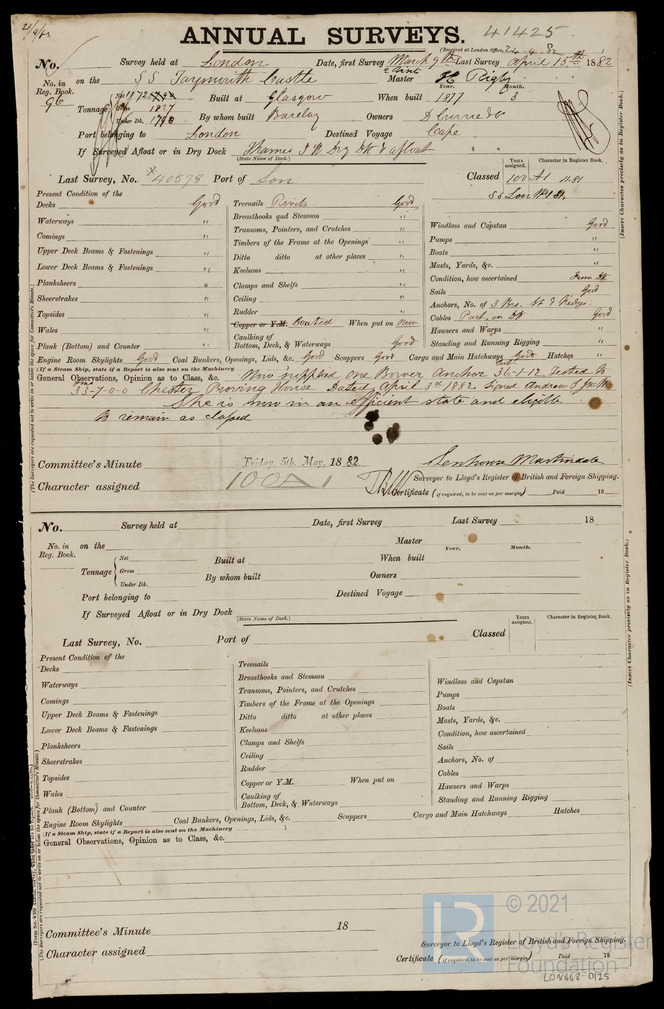 21/4/82
ANNUAL SURVEYS. 41425
(Received at London Office, 24.4.82
No. Survey held at London Date, first Survey March 9th Last Survey April 15th 1882
No. in Reg. Book. 96 on the SS Taymouth Castle Master H Rigby
Tonnage Net 1172 Gross 1827 Under Dk. Built at Glasgow When built Year. 1877 Month. 3
By whom built Barclay Owners D Currie & Co
Port belonging to London Destined Voyage Cape
If Surveyed Afloat or in Dry Dock Thames I W Dry Dk & afloat
(State Name of Dock.)
Last Survey, No. 40598 Port of Lon Classed Years assigned. 100A1 Character in Register Book. 11.81
SS Lon
Present Condition of the
Decks Good Treenails Rivets Good
Waterways " Breasthooks and Stemson " Windlass and Capstan Good
Comings " Transoms, Pointers, and Crutches " Pumps "
Upper Deck Beams & Fastenings " Timbers of the Frame at the Openings " Boats "
Lower Deck Beams & Fastenings " Ditto ditto at other places " Masts, Yards, &c. "
Planksheers " Keelsons " Condition, how ascertained From Dk
Sheerstrakes " Clamps and Shelfs " Sails Good
Topsides " Ceiling " Anchors, No. of 3 Brs. St & Kedge
Wales " Rudder " Cables Part on Dk Good
Copper or Y.M. Coated When put on Now Hawsers and Warps "
Plank (Bottom) and Counter " Caulking of Bottom, Deck, & Waterways Good Standing and Running Rigging "
Engine Room Skylights Good Coal Bunkers, Openings, Lids, &c. Good Scuppers Good Cargo and Main Hatchways Good Hatches "
(If a Steam Ship, state if a Report is also sent on the Machinery
General Observations, Opinion as to Class, &c. Now supplied one Bower Anchor 36-1-12 Tested to
33-7-0-0 Chester Proving House Dated April 3rd 1882 Signed Andrew
She is now in an efficient state and eligible
to remain as classed
Committee's Minute Friday, 5th May, 1882 Senhouse Martindale
Character assigned 100A1 Surveyor to Lloyd's Register of British and Foreign Shipping.
Certificate (if required, to be sent as per margin) Paid 18
(Insert Character precisely as in Register Book.)
(The Surveyors are requested not to write on or below the space for Committee's Minute.)
No. Survey held at Date, first Survey Last Survey 18
No. in Reg. Book. on the Master
Tonnage Net Gross Under Dk. Built at When built Year. Month.
By whom built Owners
Port belonging to Destined Voyage
If Surveyed Afloat or in Dry Dock
(State Name of Dock.)
Last Survey, No. Port of Classed Years assigned. Character in Register Book.
Present Condition of the
Decks Treenails
Waterways Breasthooks and Stemson Windlass and Capstan
Comings Transoms, Pointers, and Crutches Pumps
Upper Deck Beams & Fastenings Timbers of the Frame at the Openings Boats
Lower Deck Beams & Fastenings Ditto ditto at other places Masts, Yards, &c.
Planksheers Keelsons Condition, how ascertained
Sheerstrakes Clamps and Shelfs Sails
Topsides Ceiling Anchors, No. of
Wales Rudder Cables
Copper or Y.M. When put on Hawsers and Warps
Plank (Bottom) and Counter Caulking of Bottom, Deck, & Waterways Standing and Running Rigging
Engine Room Skylights Coal Bunkers, Openings, Lids, &c. Scuppers Cargo and Main Hatchways Hatches
(If a Steam Ship, state if a Report is also sent on the Machinery
General Observations, Opinion as to Class, &c.
Committee's Minute 18
Character assigned Surveyor to Lloyd's Register of British and Foreign Shipping.
Certificate (if required, to be sent as per margin) Paid 18
(Insert Character precisely as in Register Book.)
© 2021
Lloyd's Register
Foundation
LON668-0125